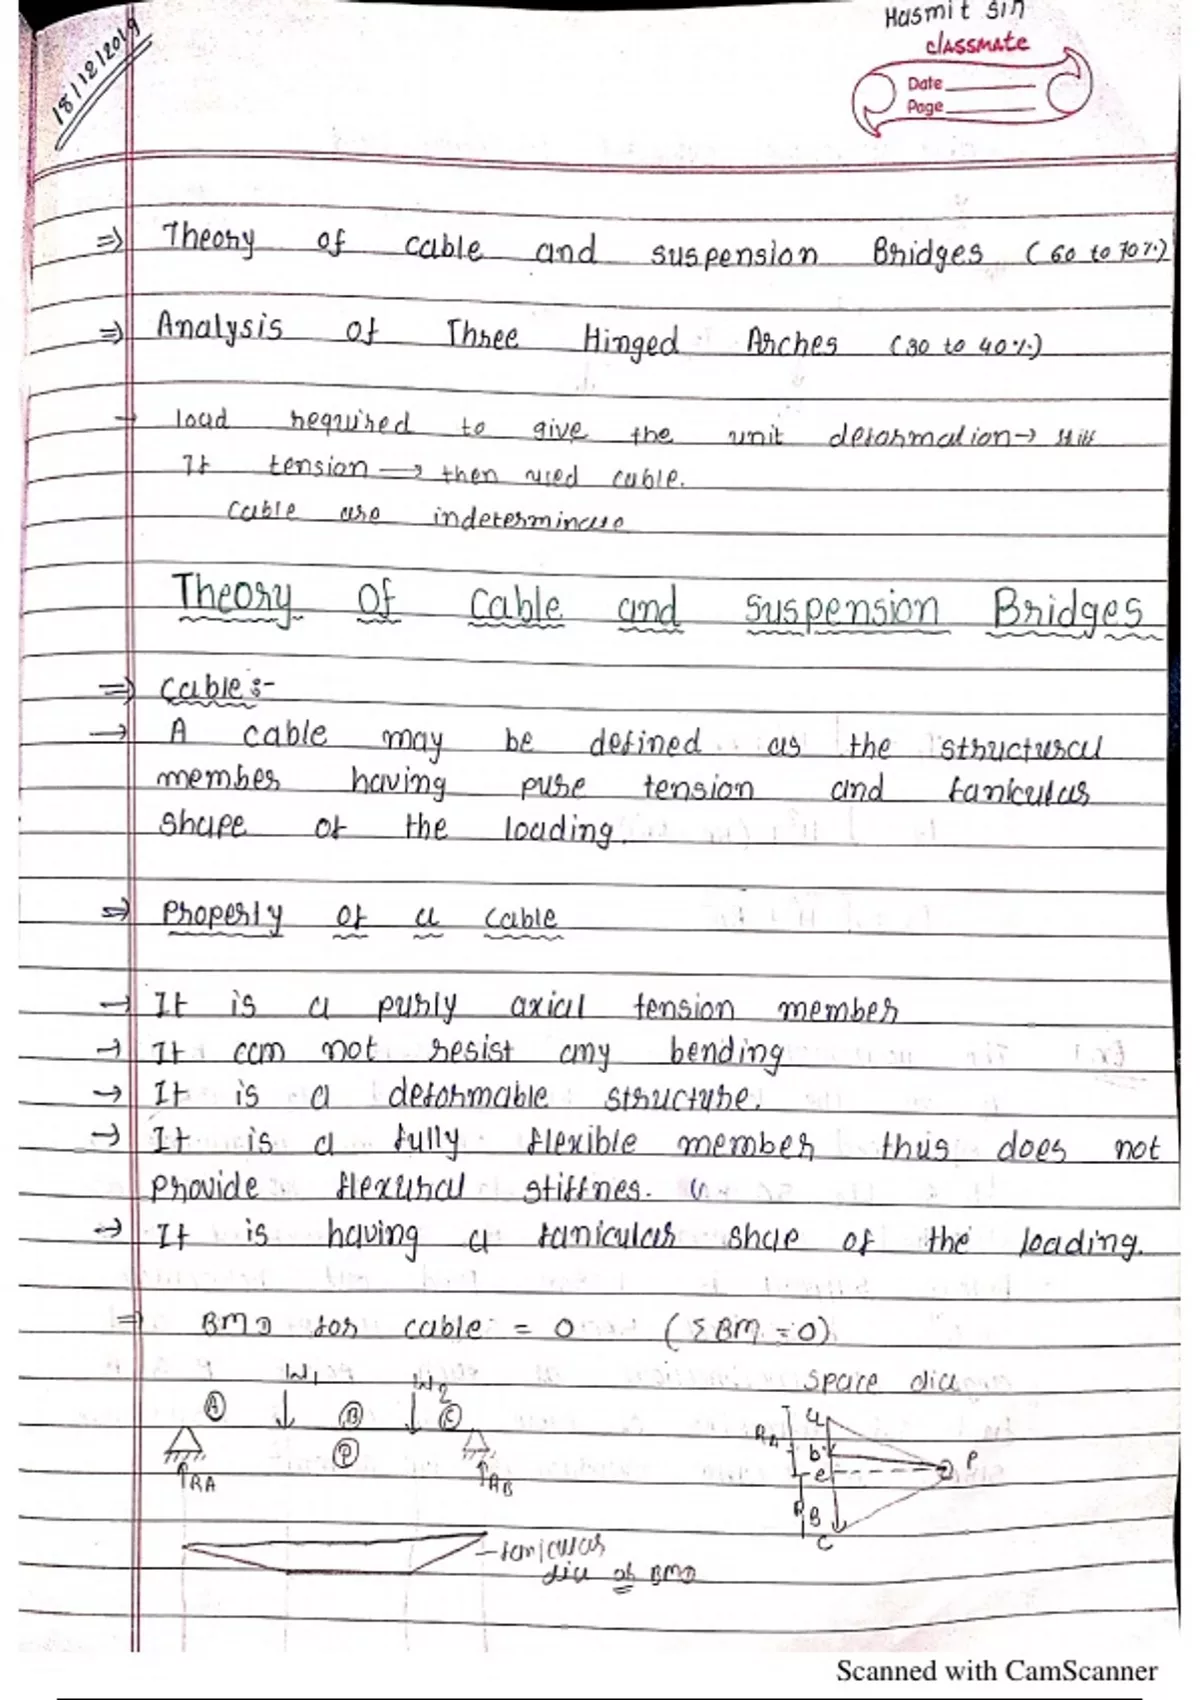 18/12/2019
Hasmit Sir
classmate
Date
Page
⇒ Theory of cable and suspension Bridges (60 to 70%)
⇒ Analysis of Three Hinged Arches (30 to 40%)
→ load required to give the unit deformation → stiff
If tension → then used cable.
cable are indeterminate
Theory of cable and suspension Bridges
⇒ Cable :-
→ A cable may be defined as the structural
member having pure tension and fanicular
shape of the loading.
⇒ Property of a cable
→ It is a purly axial tension member
→ It can not resist any bending
→ It is a deformable structure.
→ It is a fully flexible member thus does not
provide flexural stiffnes.
→ It is having a fanicular shap of the loading.
⇒ BMD for cable = 0 (ΣBM = 0)
W1 W2 space dia
A B C
P
RA RB
RA a b e P
RB c
fanicular
dia of BMD
Scanned with CamScanner